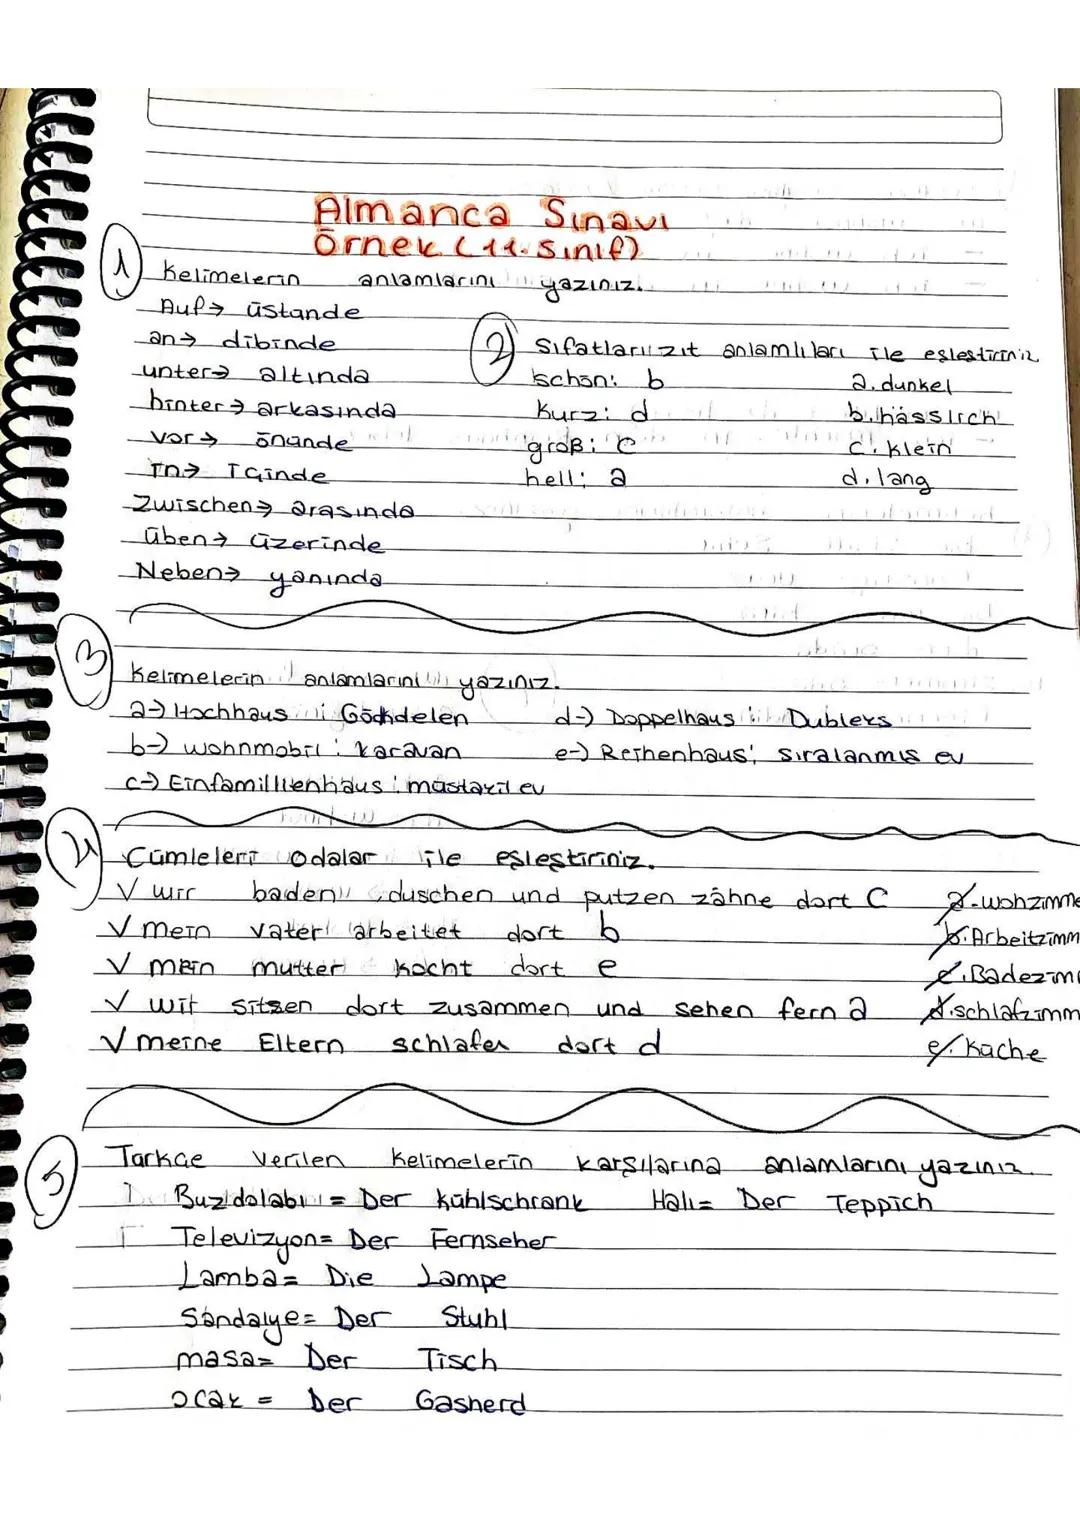 Almanca Sınavı
Örnek (11. Sınıf)
1 Kelimelerin anlamlarını yazınız.
Auf→ üstünde
an→ dibinde
unter→ altında
hinter→ arkasında
vor→ önünde
In→ İçinde
Zwischen→ arasında
üben→ üzerinde
Neben→ yanında
2 Sıfatları zıt anlamlıları ile eşleştiriniz
schön: b a. dunkel
kurz: d b. hässlich
groß: c c. klein
hell: a d. lang
3 Kelimelerin anlamlarını yazınız.
a-) Hochhaus : Gökdelen d-) Doppelhaus : Dubleks
b-) wohnmobil : karavan e-) Reihenhaus: sıralanmış ev
c-) Einfamillienhaus : müstakil ev
4 Cümleleri odalar ile eşleştiriniz.
√ wir baden, duschen und putzen zähne dort C a. wohzimme
√ mein vater arbeitet dort b b. Arbeitzimm
√ mein mutter kocht dort e c. Badezim
√ wir sitzen dort zusammen und sehen fern a d. schlafzimm
√ meine Eltern schlafen dort d e. Küche
5 Türkçe verilen kelimelerin karşılarına anlamlarını yazınız.
Buzdolabı = Der Kühlschrank Halı = Der Teppich
Televizyon = Der Fernseher
Lamba = Die Lampe
Sandalye = Der Stuhl
masa = Der Tisch
ocak = Der Gasherd